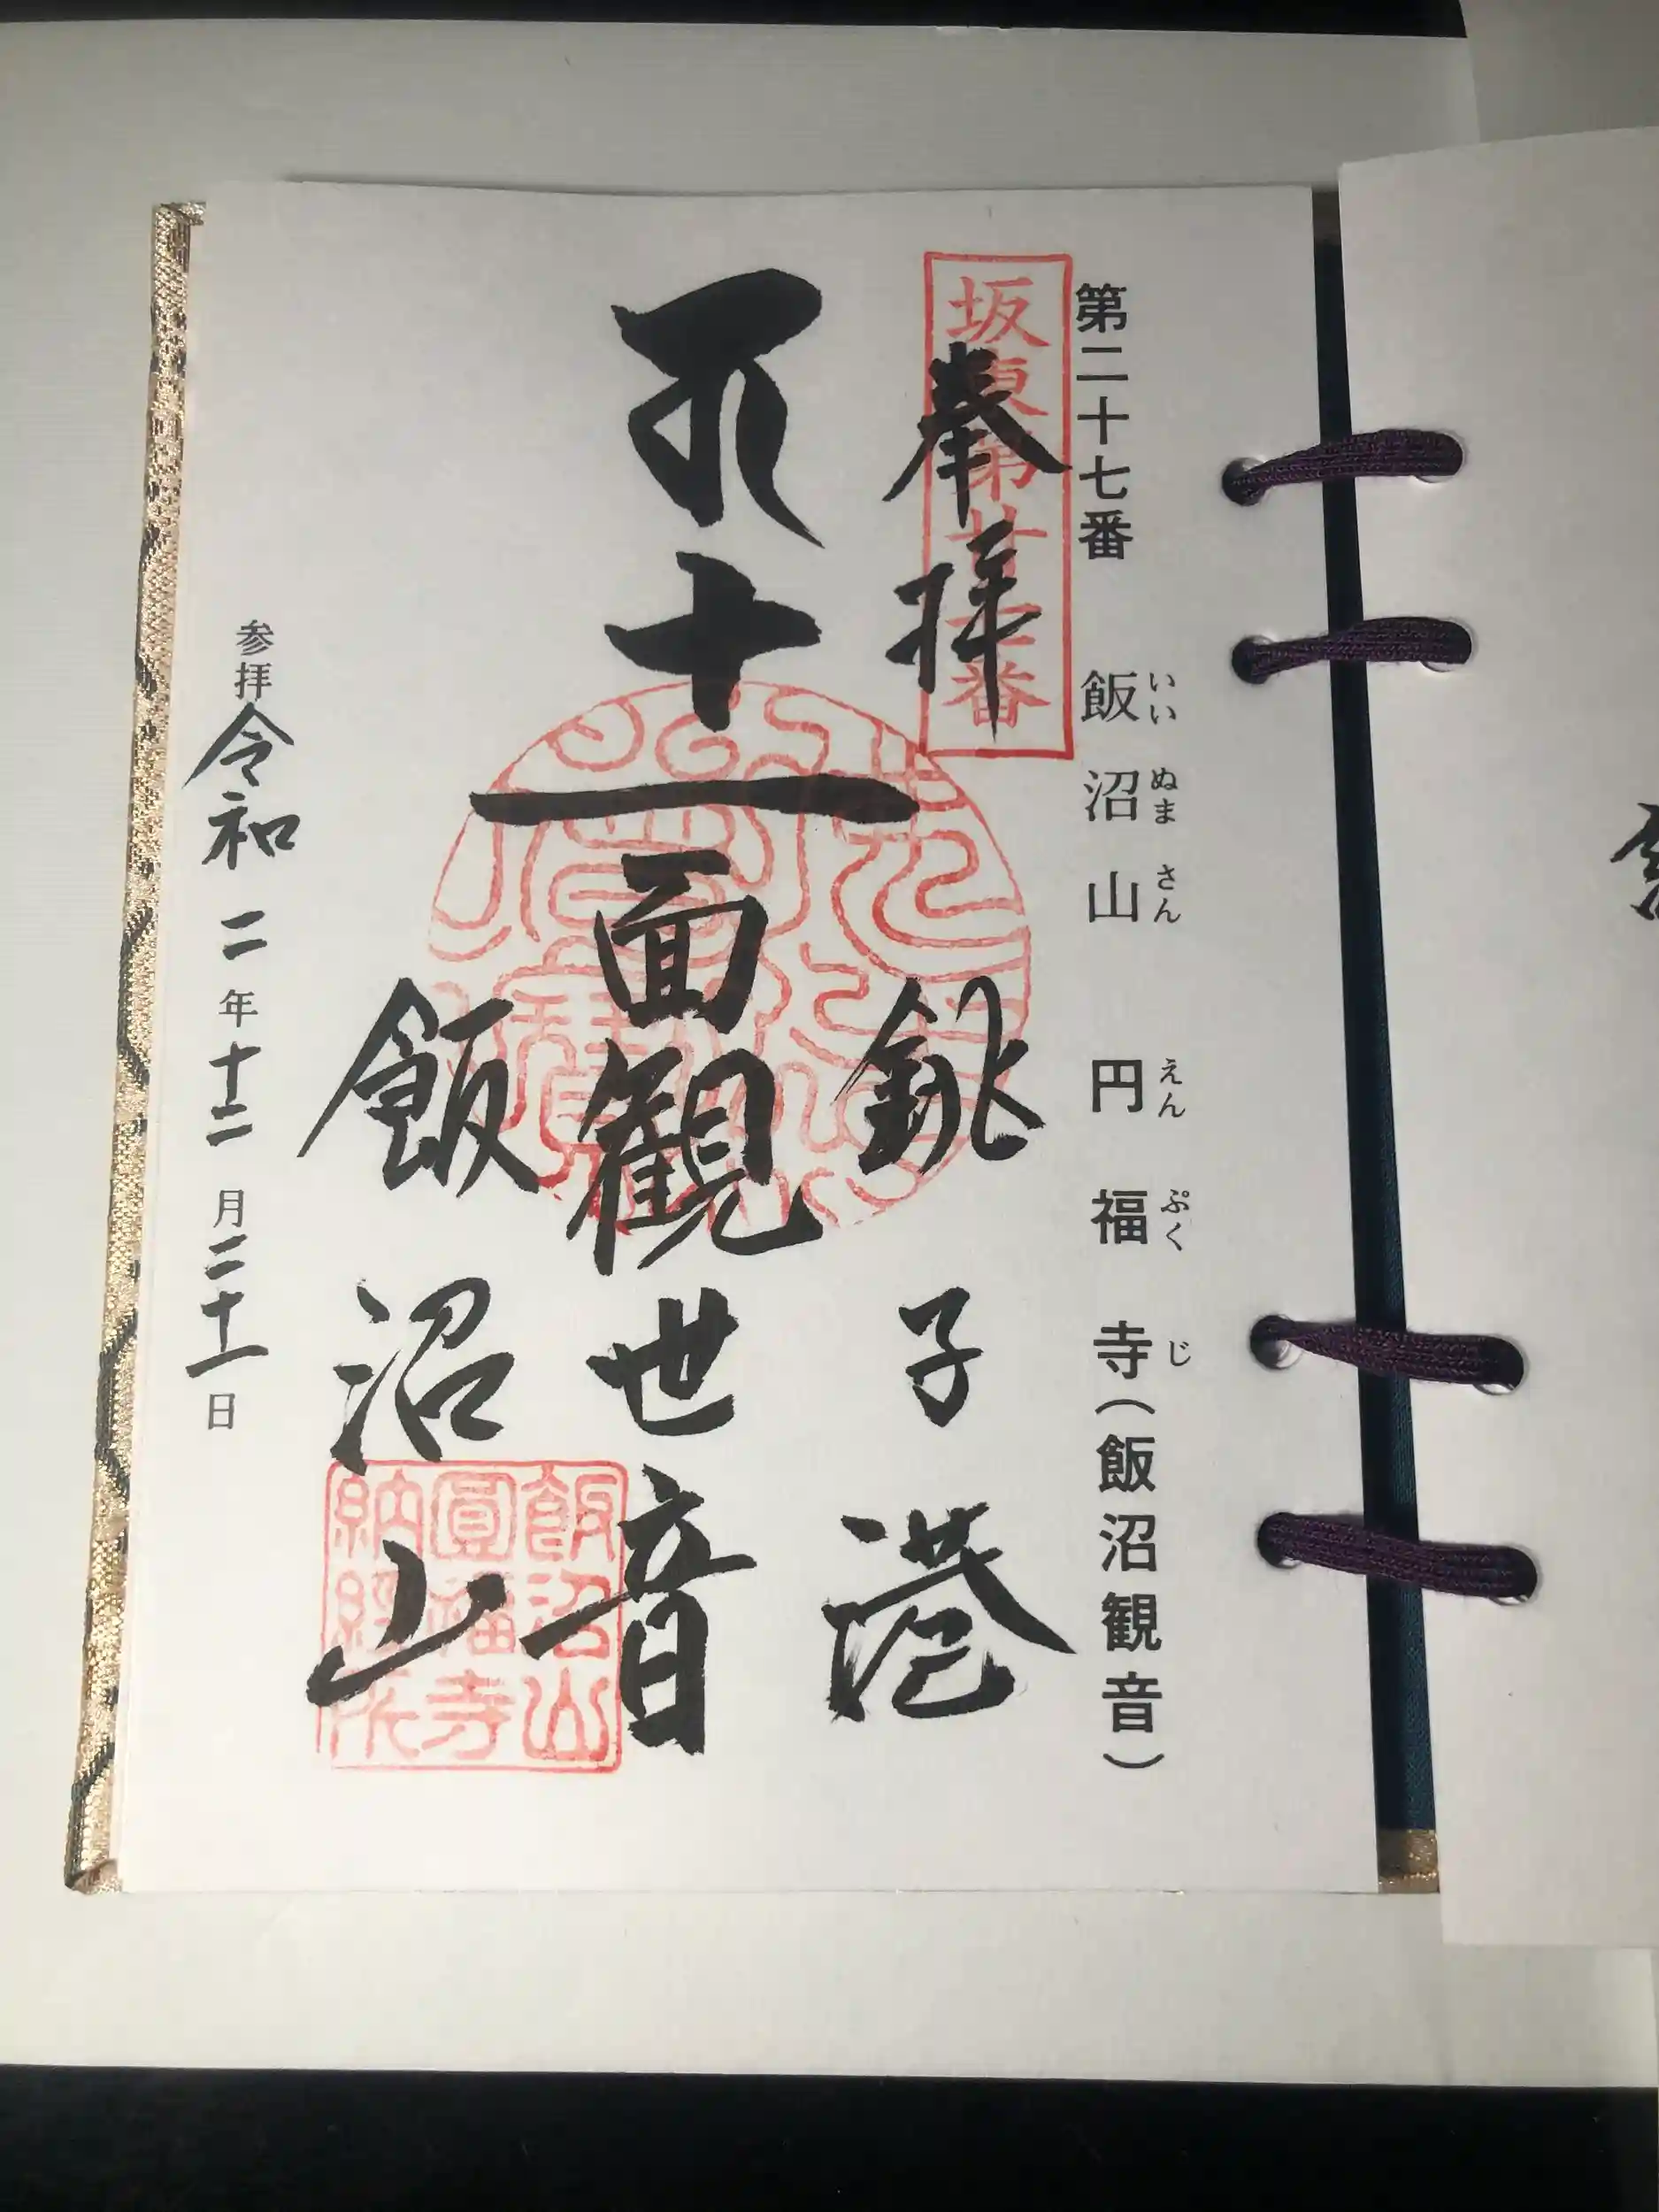 第二十七番 飯沼山 円福寺(飯沼観音)
いいぬまさん えんぷくじ
坂東第廿七番
奉拝
銚子港
十一面観世音
飯沼山
飯沼山
圓福寺
納経所
参拝令和二年十二月二十一日